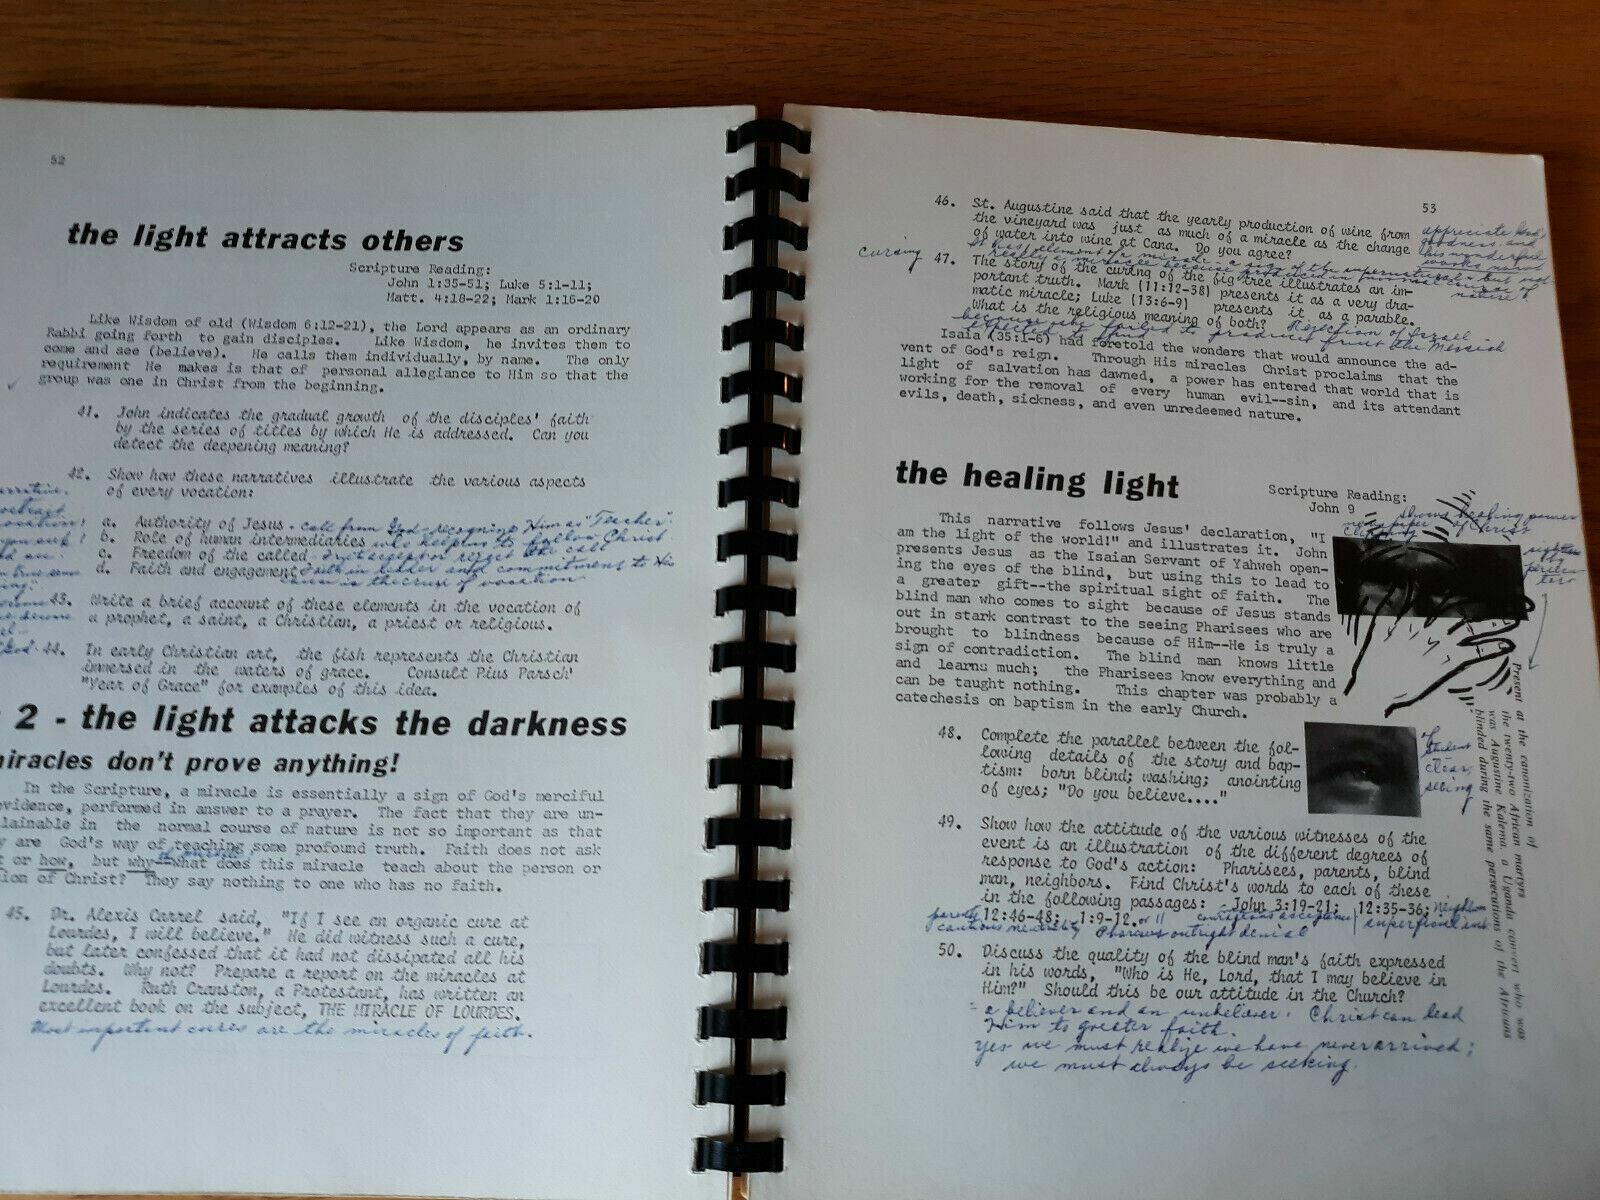 52
the light attracts others
Scripture Reading:
John 1:35-51; Luke 5:1-11;
Matt. 4:18-22; Mark 1:16-20
Like Wisdom of old (Wisdom 6:12-21), the Lord appears as an ordinary
Rabbi going forth to gain disciples. Like Wisdom, he invites them to
come and see (believe). He calls them individually, by name. The only
requirement He makes is that of personal allegiance to Him so that the
group was one in Christ from the beginning.
41. John indicates the gradual growth of the disciples' faith
by the series of titles by which He is addressed. Can you
detect the deepening meaning?
42. Show how these narratives illustrate the various aspects
of every vocation:
a. Authority of Jesus - call from God - recognizing Him as "Teacher".
b. Role of human intermediaries who help us to follow Christ
c. Freedom of the called - accept or reject the call
d. Faith and engagement Faith in leader and commitment to His
is the crux of vocation
43. Write a brief account of these elements in the vocation of
a prophet, a saint, a Christian, a priest or religious.
44. In early Christian art, the fish represents the Christian
immersed in the waters of grace. Consult Pius Parsch'
"Year of Grace" for examples of this idea.
2 - the light attacks the darkness
miracles don't prove anything!
In the Scripture, a miracle is essentially a sign of God's merciful
vidence, performed in answer to a prayer. The fact that they are un-
lainable in the normal course of nature is not so important as that
y are God's way of teaching some profound truth. Faith does not ask
t or how, but why--what does this miracle teach about the person or
ion of Christ? They say nothing to one who has no faith.
45. Dr. Alexis Carrel said, "If I see an organic cure at
Lourdes, I will believe." He did witness such a cure,
but later confessed that it had not dissipated all his
doubts. Why not? Prepare a report on the miracles at
Lourdes. Ruth Cranston, a Protestant, has written an
excellent book on the subject, THE MIRACLE OF LOURDES.
Most important cures are the miracles of faith.
53
46. St. Augustine said that the yearly production of wine from
the vineyard was just as much of a miracle as the change
of water into wine at Cana. Do you agree?
appreciate God's
goodness, and
his wonderful
works
cursing
47. The story of the curing of the fig tree illustrates an im-
portant truth. Mark (11:12-38) presents it as a very dra-
matic miracle; Luke (13:6-9) presents it as a parable.
What is the religious meaning of both? Rejection of Israel
because she failed to produce fruit the Messiah
expected to find
Isaia (35:1-6) had foretold the wonders that would announce the ad-
vent of God's reign. Through His miracles Christ proclaims that the
light of salvation has dawned, a power has entered that world that is
working for the removal of every human evil--sin, and its attendant
evils, death, sickness, and even unredeemed nature.
the healing light
Scripture Reading:
John 9
shows healing power
of Christ
newspaper
clipping
This narrative follows Jesus' declaration, "I
am the light of the world!" and illustrates it. John
presents Jesus as the Isaian Servant of Yahweh open-
ing the eyes of the blind, but using this to lead to
a greater gift--the spiritual sight of faith. The
blind man who comes to sight because of Jesus stands
out in stark contrast to the seeing Pharisees who are
brought to blindness because of Him--He is truly a
sign of contradiction. The blind man knows little
and learns much; the Pharisees know everything and
can be taught nothing. This chapter was probably a
catechesis on baptism in the early Church.
Present at the canonization of
the twenty-two African martyrs
was Augustine Kalema, a Uganda convert who was
blinded during the same persecutions of the Africans
48. Complete the parallel between the fol-
lowing details of the story and bap-
tism: born blind; washing; anointing
of eyes; "Do you believe...."
of
student
clear,
seeing
49. Show how the attitude of the various witnesses of the
event is an illustration of the different degrees of
response to God's action: Pharisees, parents, blind
man, neighbors. Find Christ's words to each of these
in the following passages: John 3:19-21; 12:35-36;
12:46-48; 1:9-12. or 11
parents cautious neutrality
Pharisees outright denial
courageous acceptance
neighbors superficial
50. Discuss the quality of the blind man's faith expressed
in his words, "Who is He, Lord, that I may believe in
Him?" Should this be our attitude in the Church?
= a believer and an unbeliever. Christ can lead
him to greater faith.
yes we must realize we have never arrived;
we must always be seeking.